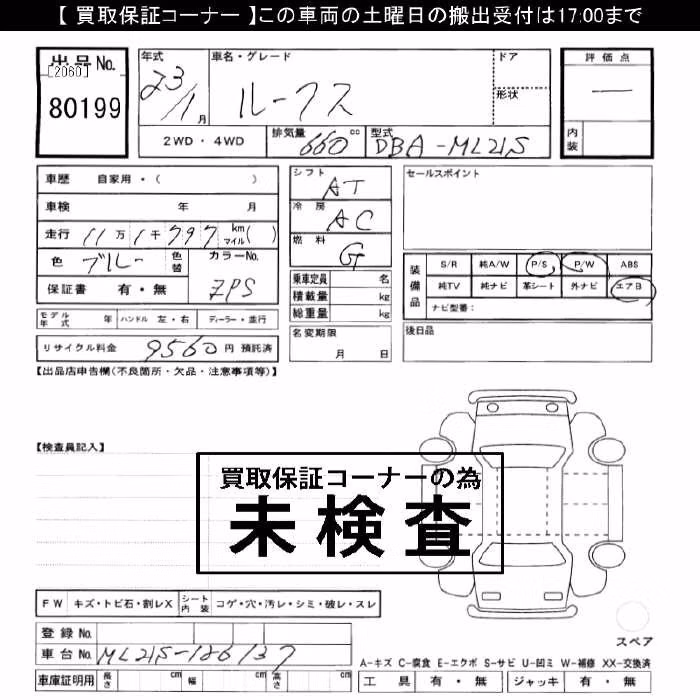 【 買取保証コーナー 】この車両の土曜日の搬出受付は17:00まで
出品No.
[2060]
80199
年式 車名・グレード ドア
23/1月 ルークス 形状
2WD・4WD 排気量 660 cc 型式 DBA-ML21S
評価点
—
内装
車歴 自家用・( )
車検 年 月
走行 11万1千797 km マイル( )
色 ブルー 色替 カラーNo.
保証書 有・無 ZPS
モデル年式 年 ハンドル 左・右 ディーラー・並行
リサイクル料金 9560 円 預託済
シフト AT
冷房 AC
燃料 G
乗車定員 名
積載量 kg
総重量 kg
名変期限
月 日
セールスポイント
装備品 S/R 純A/W P/S P/W ABS
純TV 純ナビ 革シート 外ナビ エアB
ナビ型番:
後日品
【出品店申告欄(不良箇所・欠品・注意事項等)】
【検査員記入】
買取保証コーナーの為
未検査
FW キズ・トビ石・割レX シート内装 コゲ・穴・汚レ・シミ・破レ・スレ
登録No.
車台No. ML21S-126137
車庫証明用 長さ cm 幅 cm 高さ cm
スペア
A-キズ C-腐食 E-エクボ S-サビ U-凹ミ W-補修 XX-交換済
工具 有・無 ジャッキ 有・無